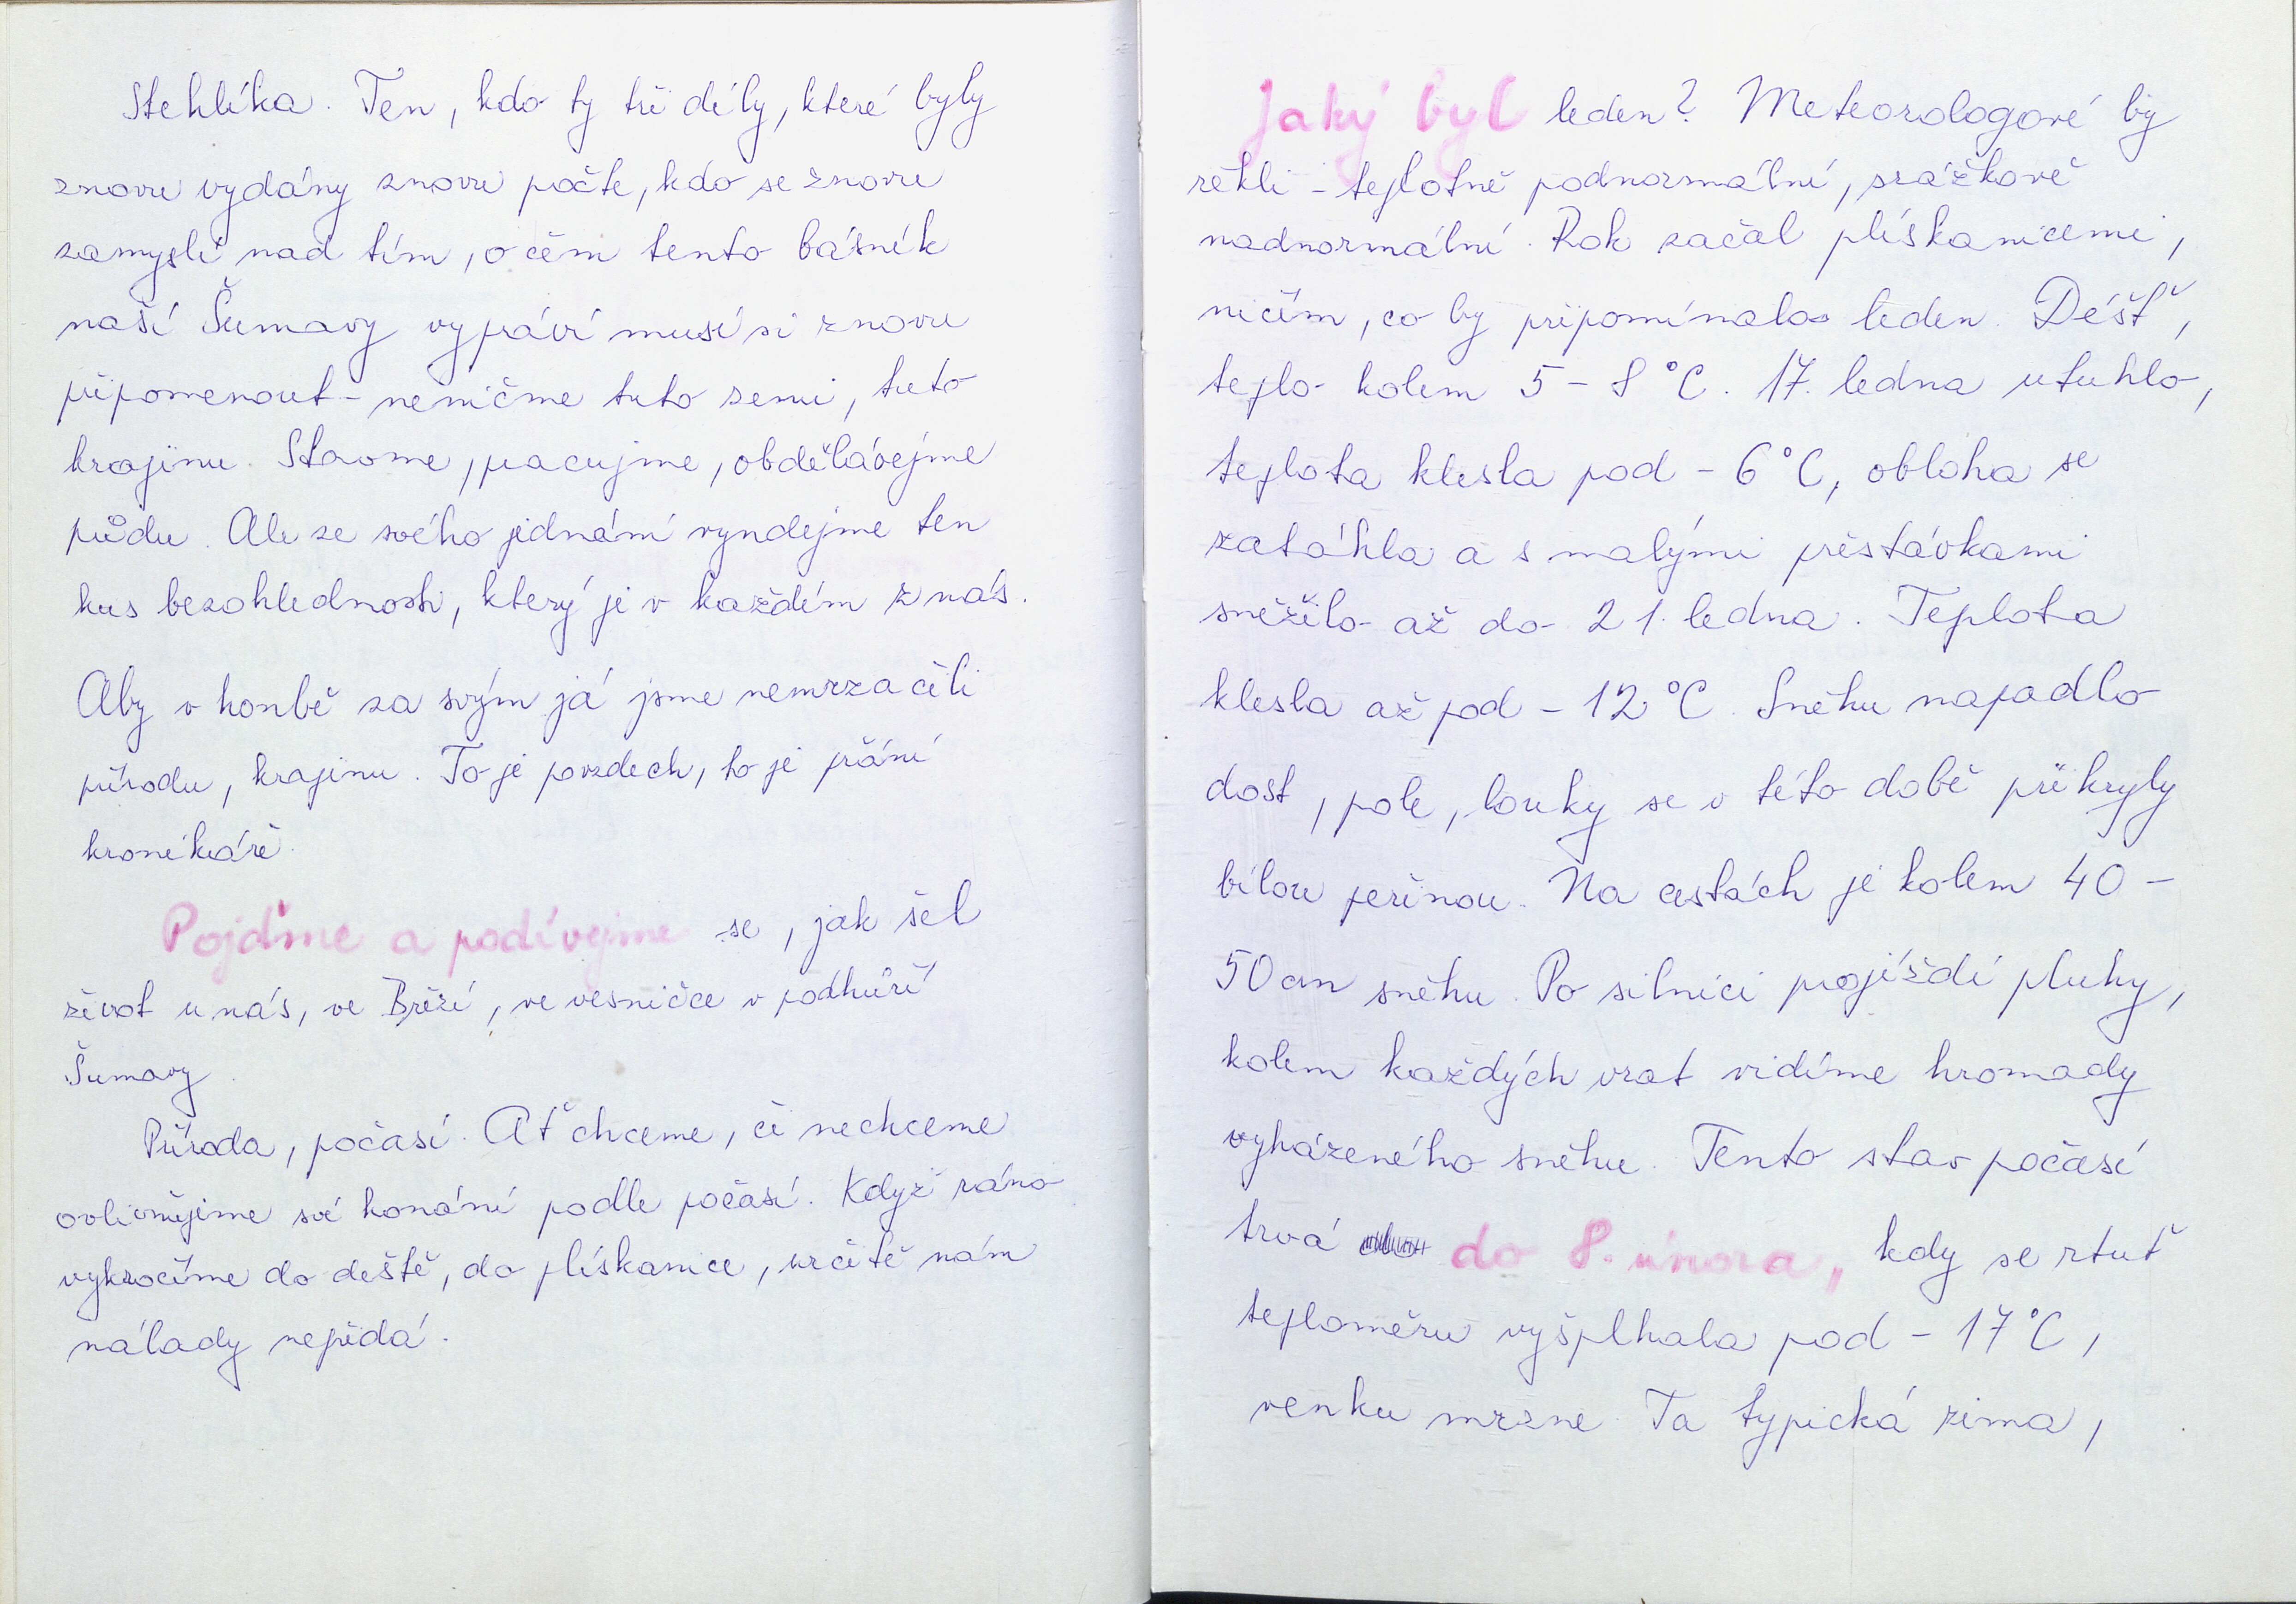 Stehlíka. Ten, kdo ty tři díly, které byly
znovu vydány znovu počte, kdo se znovu
zamyslí nad tím, o čem tento básník
naší Šumavy vypráví musí si znovu
připomenout - neničme tuto zemi, tuto
krajinu. Stavme, pracujme, obdělávejme
půdu. Ale ze svého jednání vyndejme ten
kus bezohlednosti, který je v každém z nás.
Aby v honbě za svým já jsme nemrzačili
přírodu, krajinu. To je povzdech, to je přání
kronikáře.
Pojďme a podívejme se, jak šel
život u nás, ve Břěží, ve vesničce v podhůří
Šumavy.
Příroda, počasí. Ať chceme, či nechceme
ovlivňujeme své konání podle počasí. Když ráno
vykročíme do deště, do plískanice, určitě nám
nálady nepřidá.
Jaký byl leden? Meteorologové by
řekli - teplotně podnormální, srážkově
nadnormální. Rok začal plískanicemi,
ničím, co by připomínalo leden. Déšť,
teplo kolem 5 - 8 °C. 17. ledna utuhlo,
teplota klesla pod - 6 °C, obloha se
zatáhla a s malými přestávkami
sněžilo až do 21. ledna. Teplota
klesla až pod - 12 °C. Sněhu napadlo
dost, pole, louky se v této době přikryly
bílou peřinou. Na cestách je kolem 40 -
50 cm sněhu. Po silnici projíždí pluhy,
kolem každých vrat vidíme hromady
vyházeného sněhu. Tento stav počasí
trvá do 8. února, kdy se rtuť
teploměru vyšplhala pod - 17 °C,
venku mrzne. Ta typická zima,